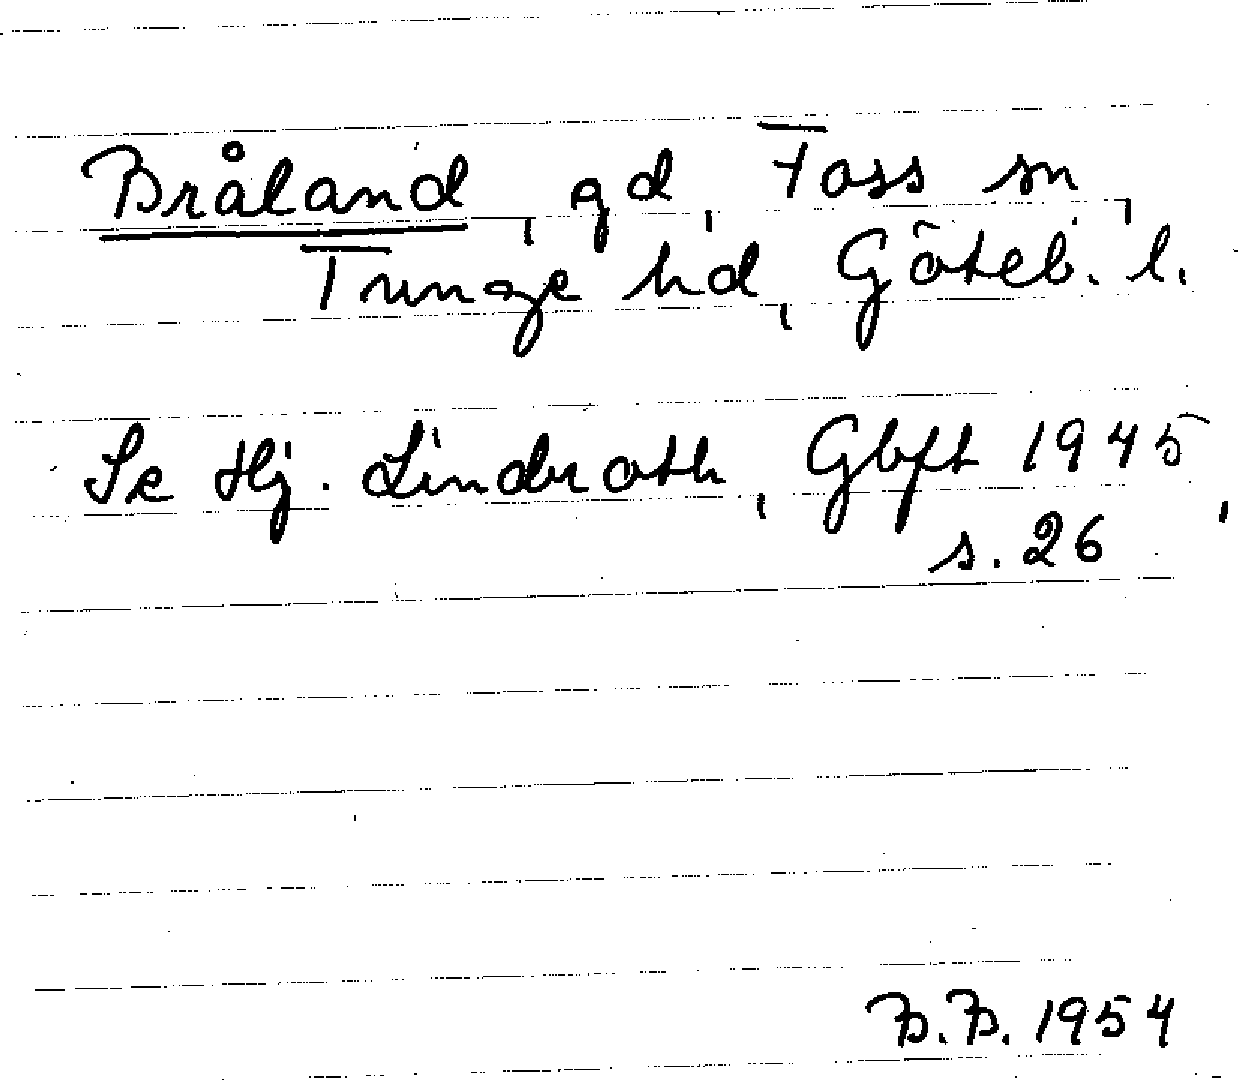 Bråland, gd, Foss sn,
Tunge hd, Göteb. l.
Se Hj. Lindroth, Gbft 1945,
s. 26
B.B. 1954